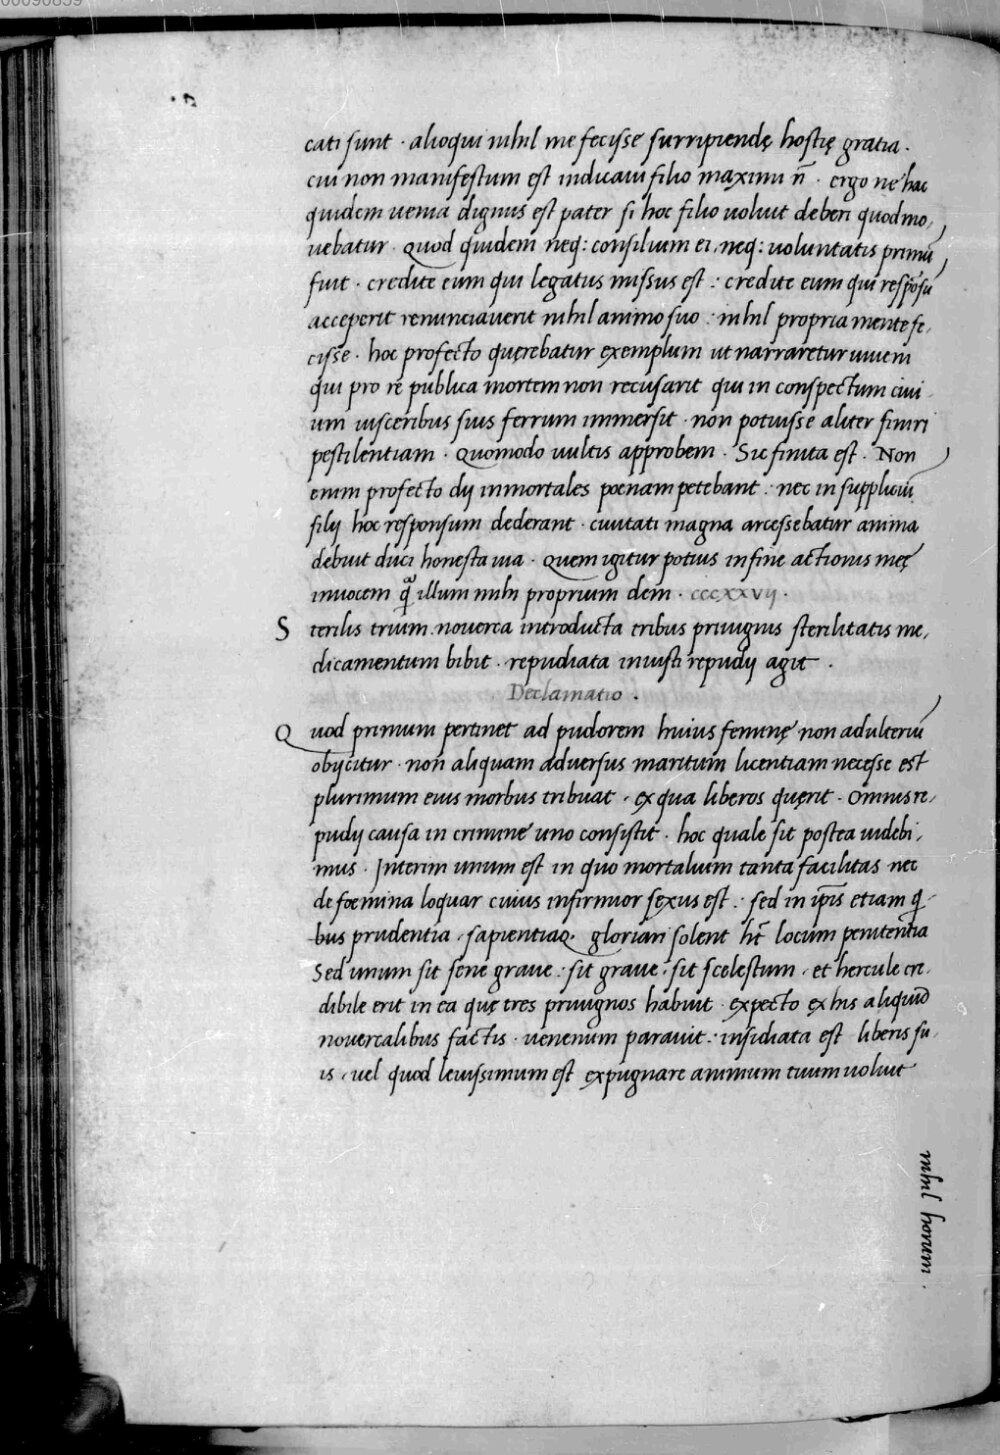 cati sunt · alioqui nihil me fecisse surripiendę hostię gratia ·
cui non manifestum est indicaui filio maximi n̄ · ergo ne hac
quidem uenia dignus est pater si hoc filio uoluit deberi quod mo,
uebatur · Quod quidem neq: consilium ei, neq: uoluntatis primū
fuit · credite eum qui legatus missus est : credite eum qui respōsū
acceperit renunciauerit nihil animo suo : nihil propria mente fe,
cisse · hoc profecto quęrebatur exemplum ut narraretur iuueni
qui pro re publica mortem non recusarit qui in conspectum ciui
um uisceribus suis ferrum immersit · non potuisse aliter finiri
pestilentiam · Quomodo uultis approbem · Sic finita est · Non
enim profecto dij inmortales poenam petebant : nec in suppliciū
filij hoc responsum dederant · ciuitati magna arcessebatur anima
debuit duci honesta uia · Quem igitur potius in fine actionis meę
inuocem q̄ illum mihi proprium dem · cccxxvij ·
S terilis trium nouerca introducta tribus priuignis sterilitatis me,
dicamentum bibit · repudiata iniusti repudij agit ·
Declamatio ·
Q uod primum pertinet ad pudorem huius feminę non adulteriū
obijcitur · non aliquam aduersus maritum licentiam necesse est
plurimum eius morbus tribuat · ex qua liberos quęrit · Omnis re,
pudij causa in crimine uno consistit · hoc quale sit postea uidebi,
mus · Interim unum est in quo mortalium tanta facilitas nec
de foemina loquar cuius infirmior sexus est : sed in ip̄is etiam q
bus prudentia, sapientiaq· gloriari solent ht̄ locum penitentia
Sed unum sit sene graue : sit graue : sit scelestum, et hercule cre,
dibile erit in ea quę tres priuignos habuit · expecto ex his aliquid
nouercalibus factis · uenenum parauit : insidiata est liberis su,
is, uel quod leuissimum est expugnare animum tuum uoluit
nihil horum ·